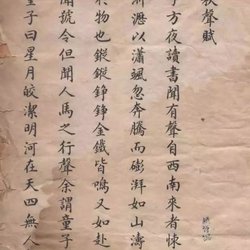 秋聲賦
予方夜讀書聞有聲自西南來者悚
淅瀝以瀟颯忽奔騰而澎湃如山濤
於物也鏦鏦錚錚金鐵皆鳴又如赴
聞號令但聞人馬之行聲余謂童子
童子曰星月皎潔明河在天四無人